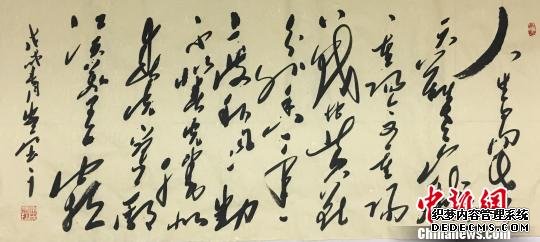 人生易老
天難老歲歲
重阳今又重阳
战地黄花
分外香一年一
度秋风劲
不似春光胜似
春光寥廓
江天万里霜
戊戌
中新网
织梦内容管理系统